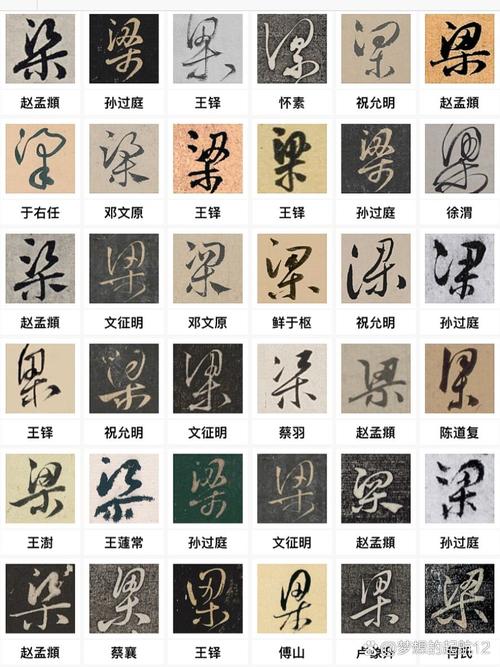 梁 梁 梁 梁 梁 梁
赵孟頫 孙过庭 王铎 怀素 祝允明 赵孟頫
梁 梁 梁 梁 梁 梁
于右任 邓文原 王铎 王铎 孙过庭 徐渭
梁 梁 梁 梁 梁 梁
赵孟頫 文征明 邓文原 鲜于枢 祝允明 孙过庭
梁 梁 梁 梁 梁 梁
王铎 祝允明 文征明 蔡羽 赵孟頫 陈道复
梁 梁 梁 梁 梁 梁
王澍 王蘧常 孙过庭 文征明 赵孟頫 孙过庭
梁 梁 梁 梁 梁 梁
赵孟頫 蔡襄 王铎 傅山
@梦想的起航12